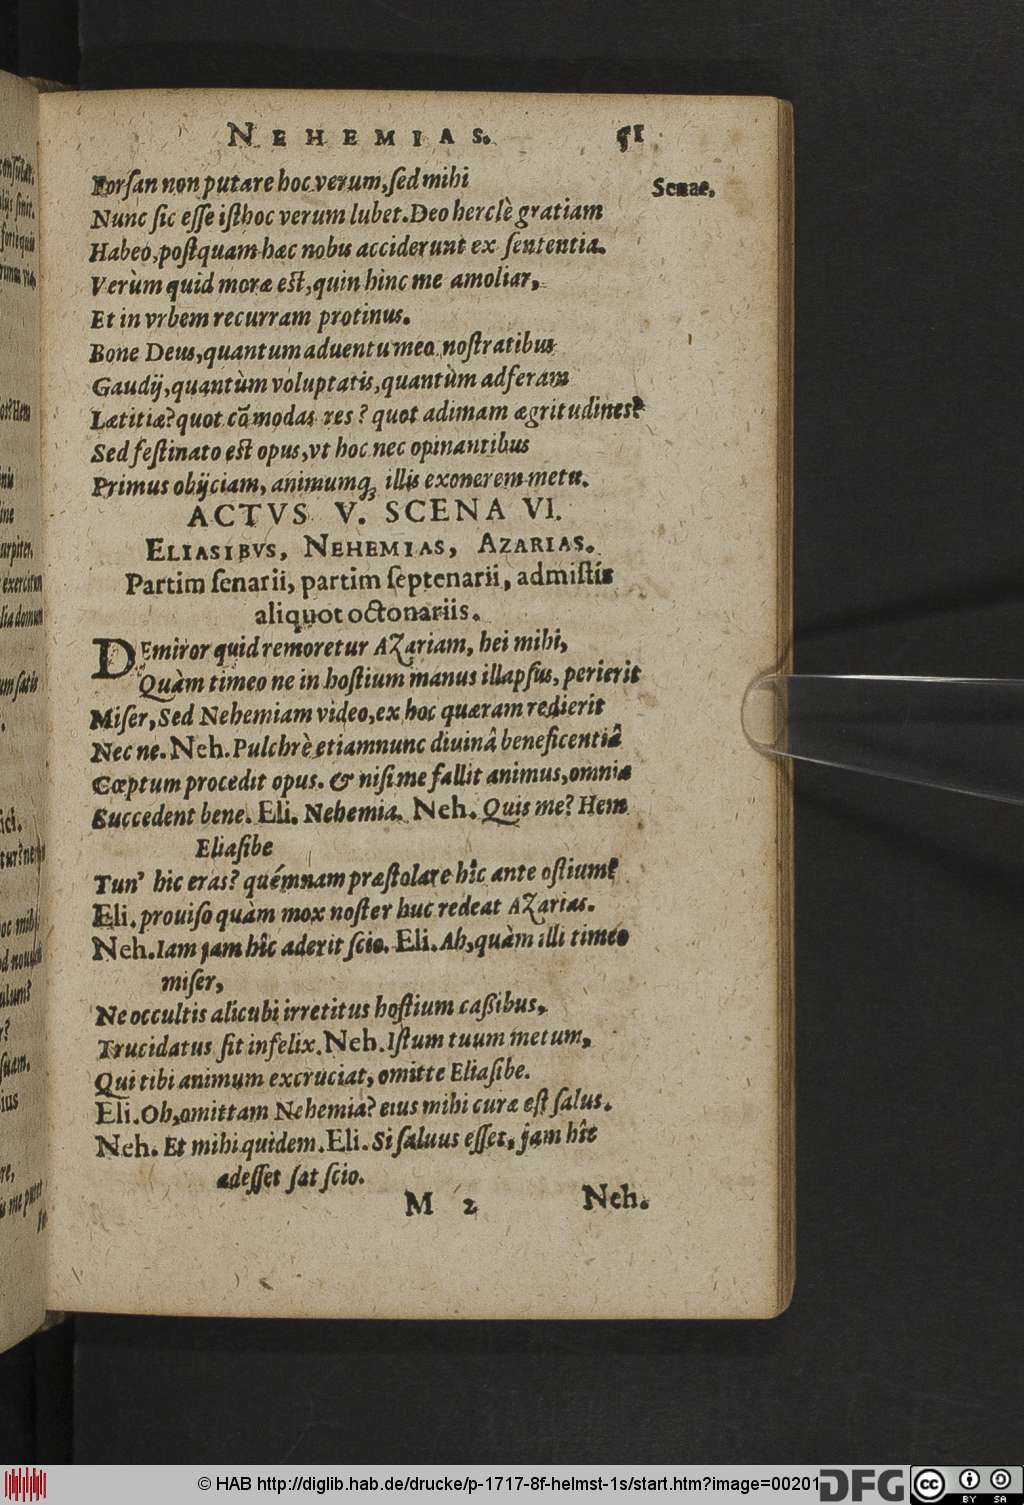 NEHEMIAS. 51
Forsan non putare hoc verum, sed mihi Senae,
Nunc sic esse isthoc verum lubet. Deo herclè gratiam
Habeo, postquam hæc nobis acciderunt ex sententia.
Verùm quid moræ est, quin hinc me amoliar,
Et in vrbem recurram protinus.
Bone Deus, quantum aduentu meo nostratibus
Gaudij, quantùm voluptatis, quantùm adferam
Lætitiæ? quot cōmodas res? quot adimam ægritudines?
Sed festinato est opus, vt hoc nec opinantibus
Primus obijciam, animumq́; illis exonerem metu.
ACTVS V. SCENA VI.
ELIASIBVS, NEHEMIAS, AZARIAS.
Partim senarii, partim septenarii, admistis
aliquot octonariis.
DEmiror quid remoretur AZariam, hei mihi,
Quàm timeo ne in hostium manus illapsus, perierit
Miser, Sed Nehemiam video, ex hoc quæram redierit
Nec ne. Neh. Pulchrè etiamnunc diuinâ beneficentiâ
Cœptum procedit opus. & nisi me fallit animus, omnia
Succedent bene. Eli. Nehemia. Neh. Quis me? Hem
Eliasibe
Tun' hic eras? quémnam præstolare hîc ante ostium?
Eli. prouiso quàm mox noster huc redeat AZarias.
Neh. Iam jam hîc aderit scio. Eli. Ah, quàm illi timeo
miser,
Ne occultis alicubi irretitus hostium caßibus,
Trucidatus sit infelix. Neh. Istum tuum metum,
Qui tibi animum excruciat, omitte Eliasibe.
Eli. Oh, omittam Nehemia? eius mihi curæ est salus.
Neh. Et mihi quidem. Eli. Si saluus esset, jam hîc
adesset sat scio.
M 2 Neh.
© HAB http://diglib.hab.de/drucke/p-1717-8f-helmst-1s/start.htm?image=00201
DFG cc BY SA